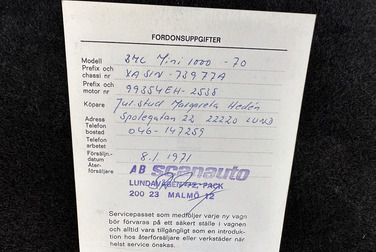 FORDONSUPPGIFTER
Modell BMC Mini 1000 -70
Prefix och
chassi nr XASIN-73977A
Prefix och
motor nr 99354EH-2538
Köpare Jur.stud Margareta Hedén
Adress Spolegatan 22, 22220 LUND
Telefon
bostad 046-147259
Telefon
arbetet
Försäljn.-
datum 8.1 1971
Åter-
försäljare AB scanauto
LUNDAVÄGEN 72, FACK
200 23 MALMÖ 12
Servicepasset som medföljer varje ny vagn
bör förvaras på ett säkert ställe i vagnen
och alltid vara tillgängligt som en introduk-
tion hos återförsäljare eller verkstäder när
helst service önskas.